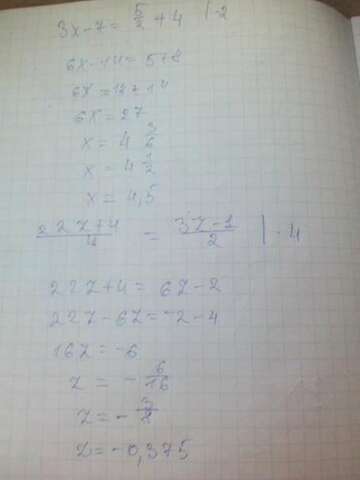 3x-7 = 5/2 + 4 | ·2
6x-14 = 5+8
6x = 13+14
6x = 27
x = 4 3/6
x = 4 1/2
x = 4,5
22z+4/4 = 3z-1/2 | · 4
22z+4 = 6z-2
22z-6z = -2-4
16z = -6
z = - 6/16
z = - 3/8
z = -0,375